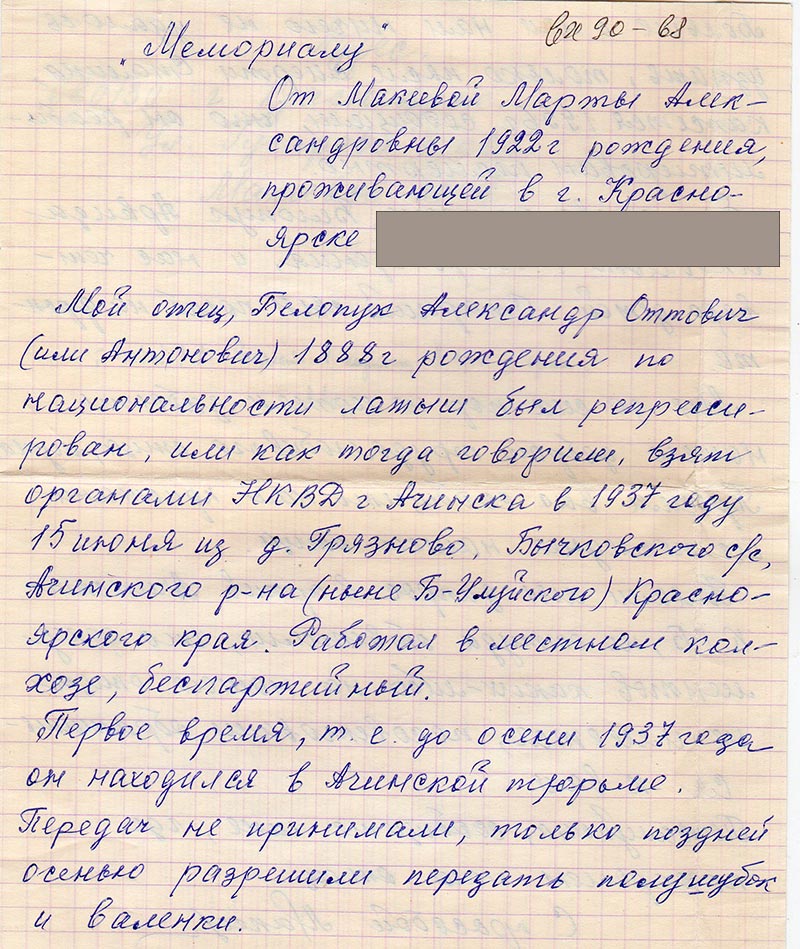 вх 90-68
"Мемориалу"
От Макеевой Марты Алек-
сандровны 1922 г рождения,
проживающей в г. Красно-
ярске
Мой отец, Белопух Александр Оттович
(или Антонович) 1888 г рождения по
национальности латыш был репресси-
рован, или как тогда говорили, взят
органами НКВД г Ачинска в 1937 году
15 июня из д. Грязново Бычковского с/с,
Ачинского р-на (ныне Б-Улуйского) Красно-
ярского края. Работал в местном кол-
хозе, беспартийный.
Первое время, т.е. до осени 1937 года
он находился в Ачинской тюрьме.
Передач не принимали, только поздней
осенью разрешили передать полушубок
и валенки.